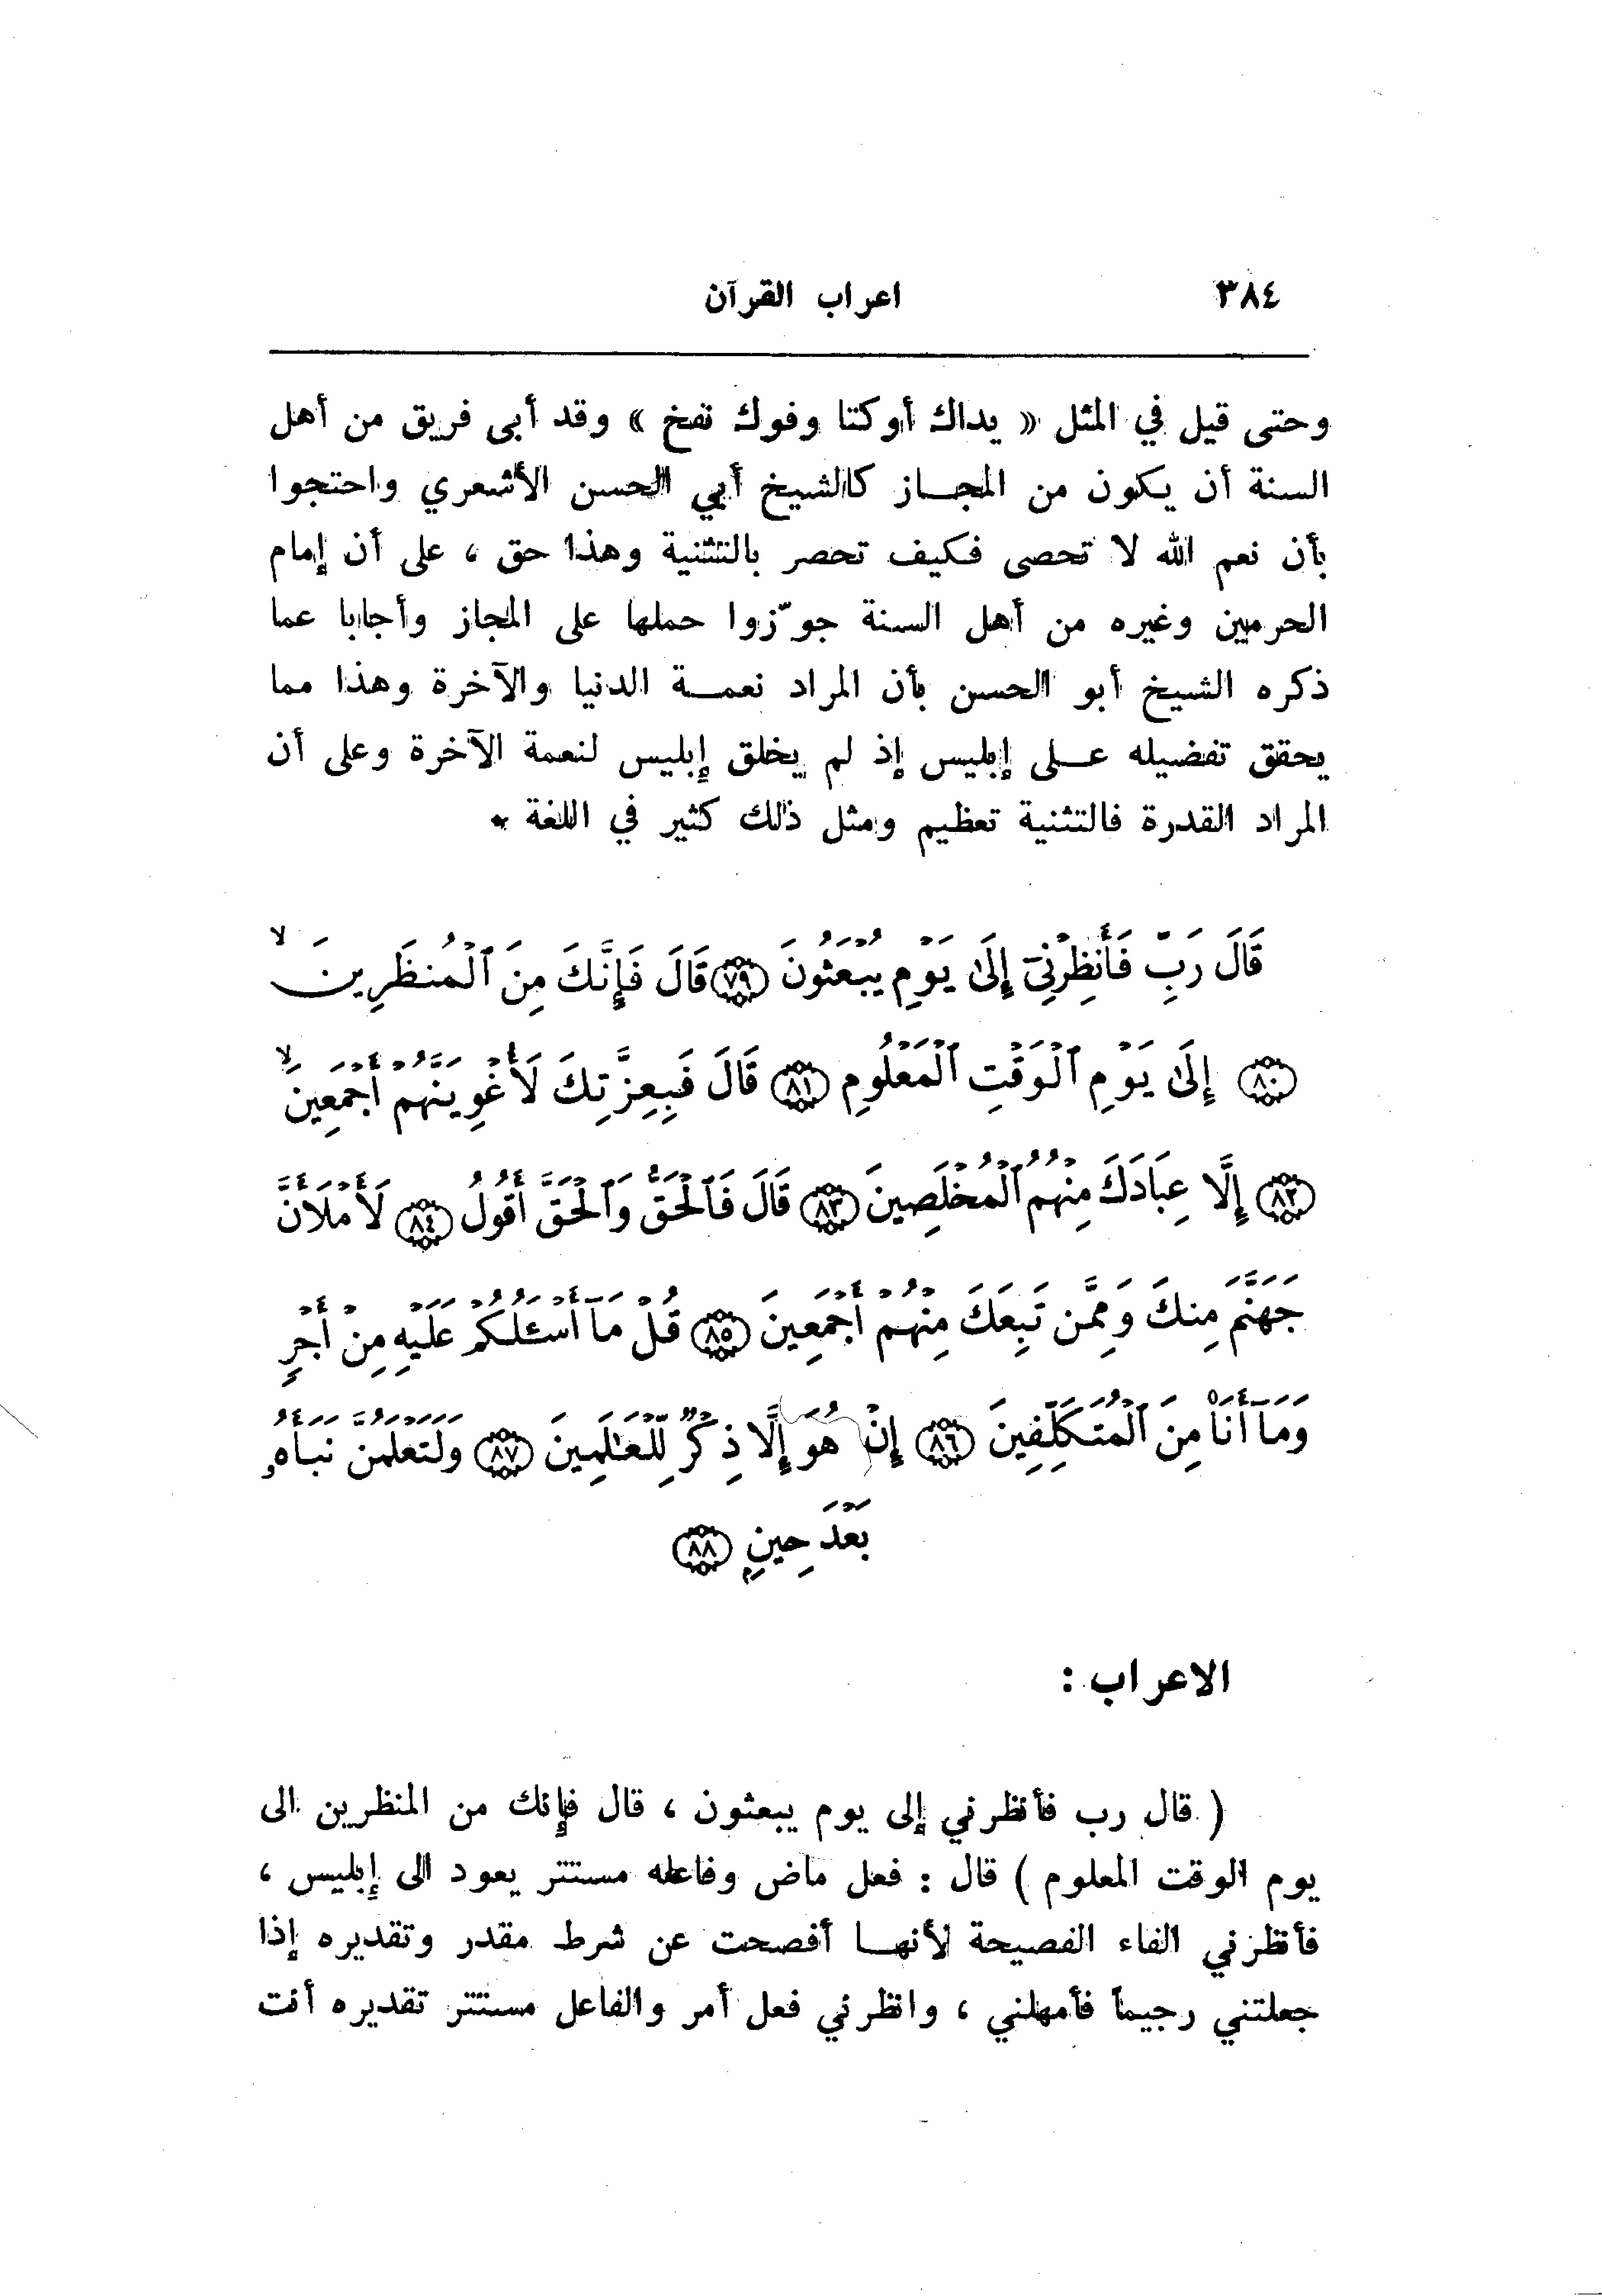 ٣٨٤ اعراب القرآن
وحتى قيل في المثل « يداك أوكتا وفوك نفخ » وقد أبى فريق من أهل
السنة أن يكون من المجاز كالشيخ أبي الحسن الأشعري واحتجوا
بأن نعم الله لا تحصى فكيف تحصر بالتثنية وهذا حق ، على أن إمام
الحرمين وغيره من أهل السنة جوّزوا حملها على المجاز وأجابا عما
ذكره الشيخ أبو الحسن بأن المراد نعمة الدنيا والآخرة وهذا مما
يحقق تفضيله على إبليس إذ لم يخلق إبليس لنعمة الآخرة وعلى أن
المراد القدرة فالتثنية تعظيم ومثل ذلك كثير في اللغة •
قَالَ رَبِّ فَأَنظِرْنِىٓ إِلَىٰ يَوْمِ يُبْعَثُونَ ﴿٧٩﴾ قَالَ فَإِنَّكَ مِنَ ٱلْمُنظَرِينَ ۙ
﴿٨٠﴾ إِلَىٰ يَوْمِ ٱلْوَقْتِ ٱلْمَعْلُومِ ﴿٨١﴾ قَالَ فَبِعِزَّتِكَ لَأُغْوِيَنَّهُمْ أَجْمَعِينَ ۙ
﴿٨٢﴾ إِلَّا عِبَادَكَ مِنْهُمُ ٱلْمُخْلَصِينَ ﴿٨٣﴾ قَالَ فَٱلْحَقُّ وَٱلْحَقَّ أَقُولُ ﴿٨٤﴾ لَأَمْلَأَنَّ
جَهَنَّمَ مِنكَ وَمِمَّن تَبِعَكَ مِنْهُمْ أَجْمَعِينَ ﴿٨٥﴾ قُلْ مَآ أَسْـَٔلُكُمْ عَلَيْهِ مِنْ أَجْرٍ
وَمَآ أَنَا۠ مِنَ ٱلْمُتَكَلِّفِينَ ﴿٨٦﴾ إِنْ هُوَ إِلَّا ذِكْرٌ لِّلْعَـٰلَمِينَ ﴿٨٧﴾ وَلَتَعْلَمُنَّ نَبَأَهُۥ
بَعْدَ حِينٍۭ ﴿٨٨﴾
الاعراب :
( قال رب فأنظرني إلى يوم يبعثون ، قال فإنك من المنظرين الى
يوم الوقت المعلوم ) قال : فعل ماض وفاعله مستتر يعود الى إبليس ،
فأنظرني الفاء الفصيحة لأنها أفصحت عن شرط مقدر وتقديره إذا
جعلتني رجيماً فأمهلني ، وانظرني فعل أمر والفاعل مستتر تقديره أنت